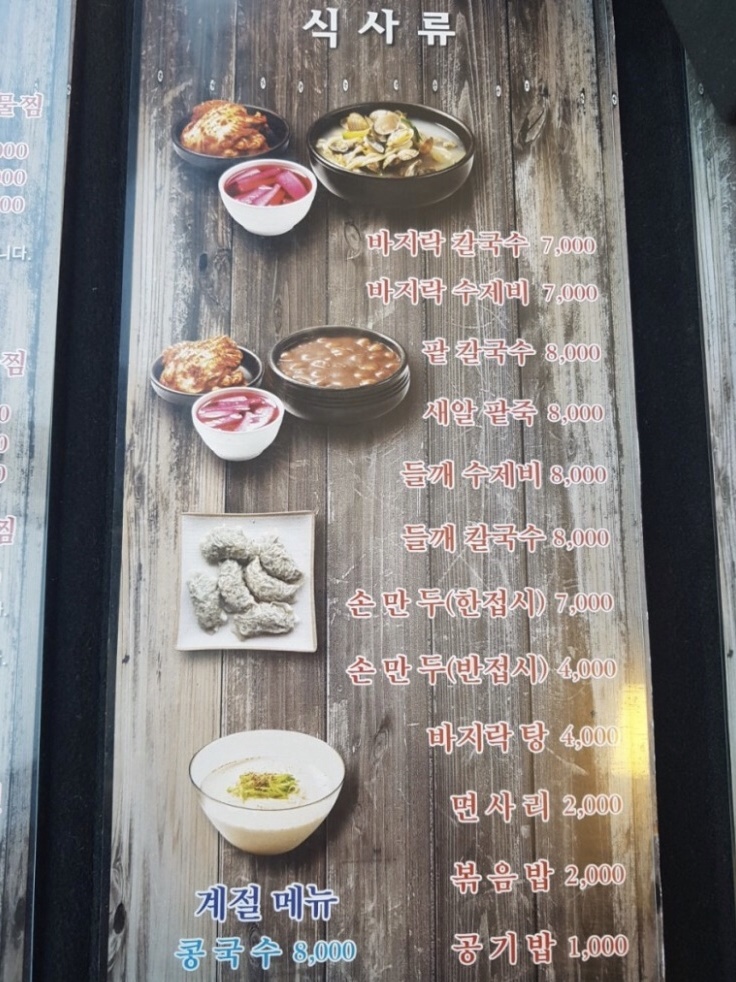 식사류
바지락 칼국수 7,000
바지락 수제비 7,000
팥 칼국수 8,000
새알 팥죽 8,000
들깨 수제비 8,000
들깨 칼국수 8,000
손만두(한접시) 7,000
손만두(반접시) 4,000
바지락 탕 4,000
면사리 2,000
볶음밥 2,000
공기밥 1,000
계절 메뉴
콩국수 8,000
물찜
니다.
찜
찜